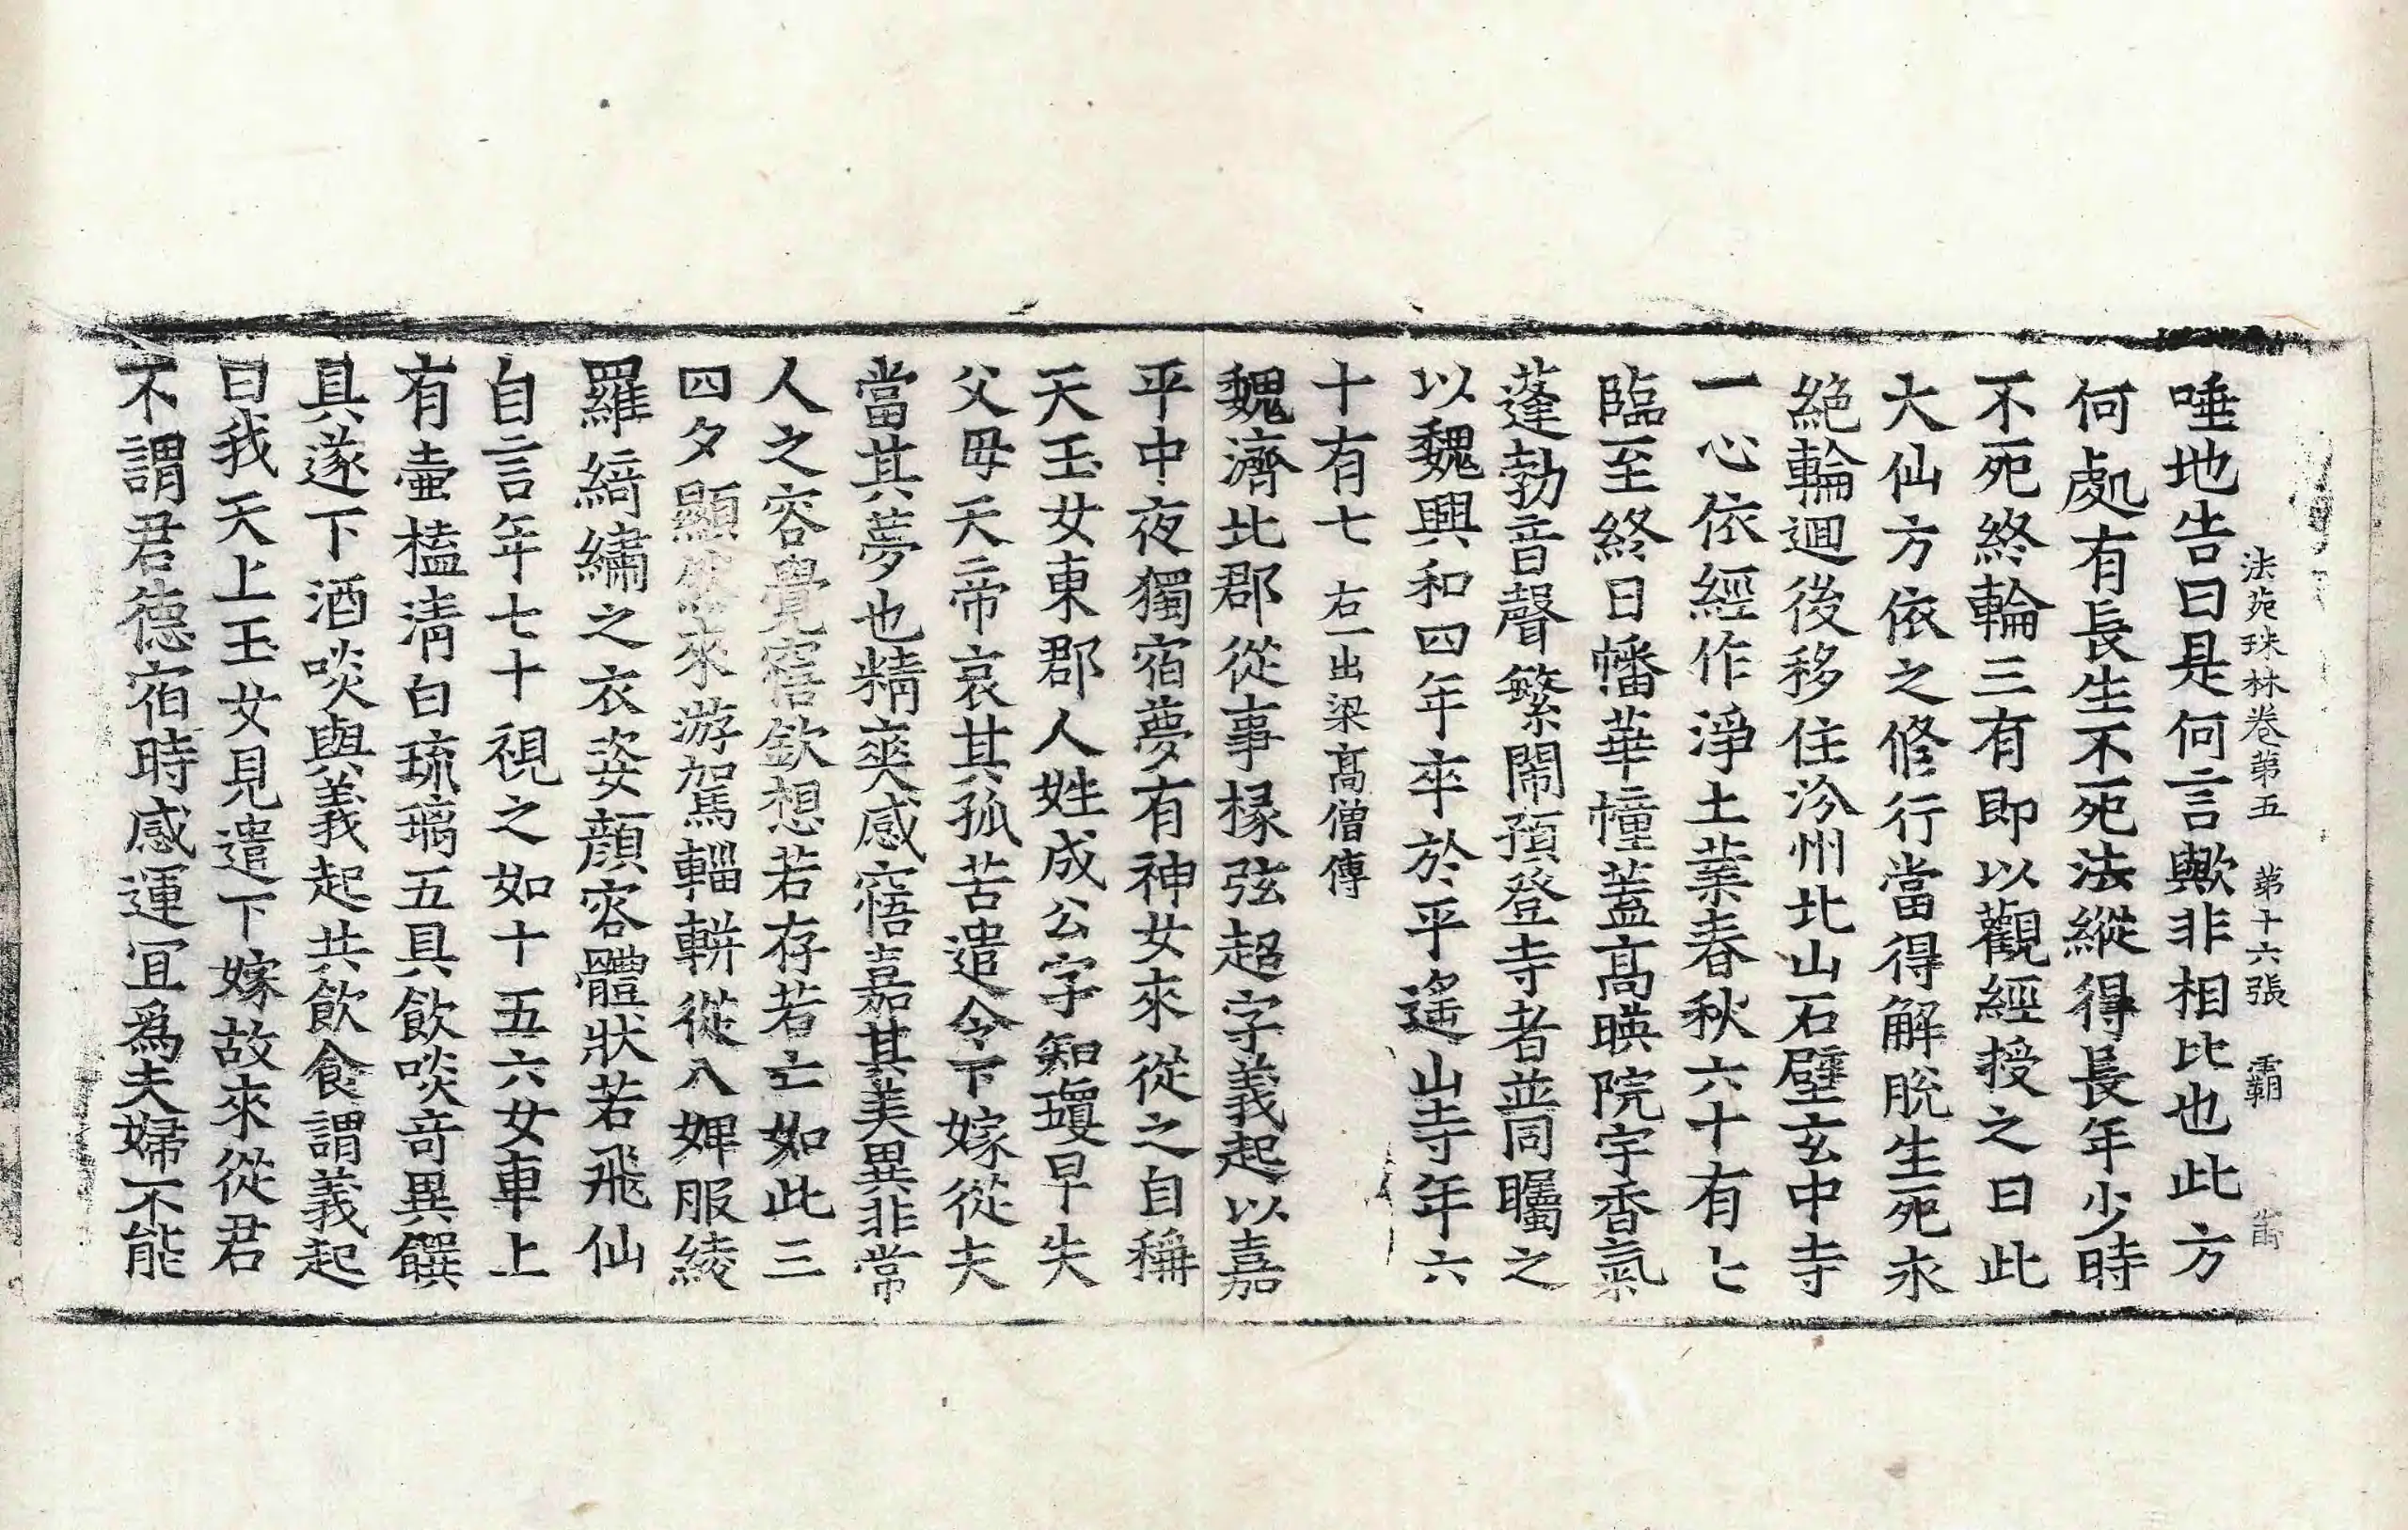 法苑珠林卷第五 第十六張 霸
唾地告曰是何言歟非相比也此方
何處有長生不死法縱得長年少時
不死終輪三有即以觀經授之曰此
大仙方依之修行當得解脫生死永
絕輪迴後移住汾州北山石壁玄中寺
一心依經作淨土業春秋六十有七
臨至終日幡華幢蓋高暎院宇香氣
蓬勃音聲繁鬧預登寺者並同矚之
以魏興和四年卒於平遙山寺年六
十有七 右一出梁高僧傳
魏濟北郡從事掾弦超字義起以嘉
平中夜獨宿夢有神女來從之自稱
天玉女東郡人姓成公字知瓊早失
父毋天帝哀其孤苦遣令下嫁從夫
當其夢也精爽感寤嘉其美異非常
人之容覺寤欽想若存若亡如此三
四夕顯然來游駕輜軿從八婢服綾
羅綺繡之衣姿顏容體狀若飛仙
自言年七十視之如十五六女車上
有壷榼清白琉璃五具飲啖竒異饌
具遂下酒啖與義起共飲食謂義起
曰我天上玉女見遣下嫁故來從君
不謂君德宿時感運冝爲夫婦不能